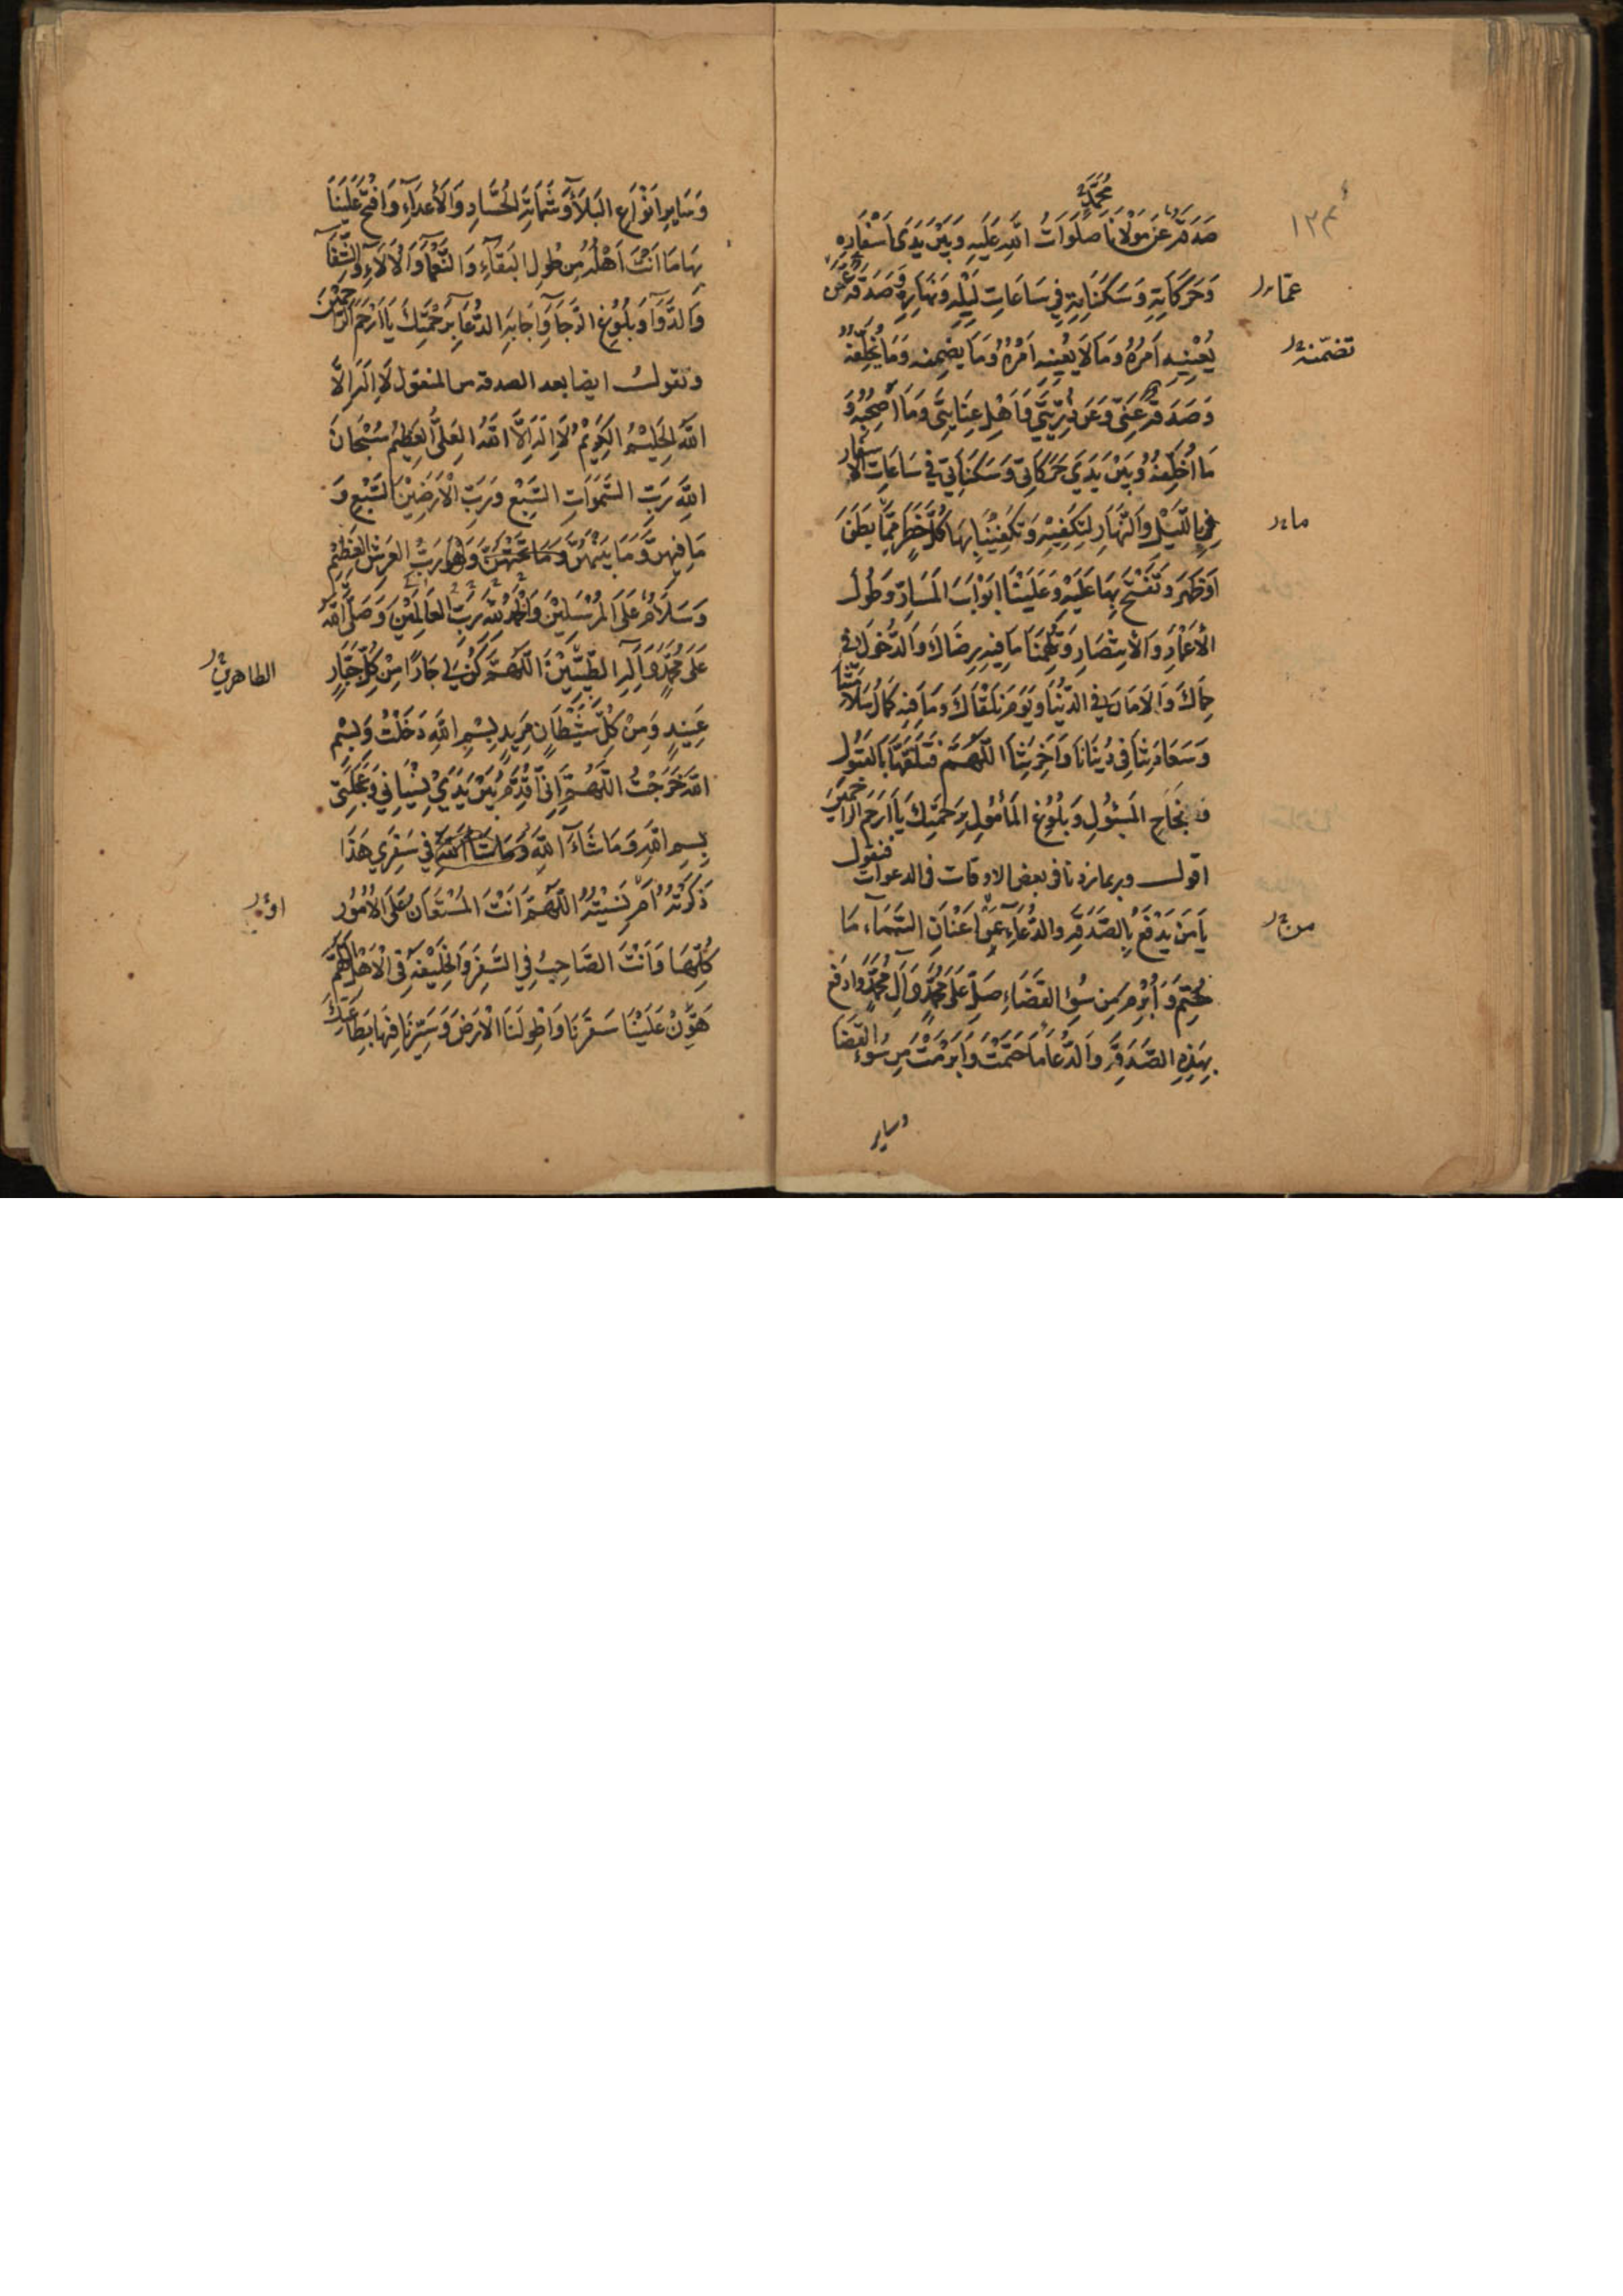 ١٣٤
محمد
صَدَقَةٌ عَنْ مَوْلَانَا صَلَوَاتُ اللهِ عَلَيْهِ وَبَيْنَ يَدَى اَسْفَارِهِ
وَحَرَكَاتِهِ وَسَكَنَاتِهِ فِي سَاعَاتِ لَيْلِهِ وَنَهَارِهِ وَصَدَقَةٌ عَمَّنْ
عما
يَعْنِيهِ اَمْرُهُ وَمَا لَا يَعْنِيهِ اَمْرُهُ وَمَا يضمنه وَمَا يُخَلِّفُهُ
تضمّنه
وَصَدَقَةٌ عَنِّى وَعَنْ ذُرِّيَّتِي وَاَهْلِ عِنَايَتِى وَمَا اَصْحَبُهُ وَ
مَا اُخَلِّفُهُ وَبَيْنَ يَدَيْ حَرَكَاتِى وَسَكَنَاتِى فِي سَاعَاتِ الاسفار
فِي اللَّيْلِ وَالنَّهَارِ لِتَكْفِيَهُ وَتَكْفِيَنَا بِهَا كُلَّ خَطَرٍ مِمَّا بَطَنَ
ما
اَوْ ظَهَرَ وَتَفْتَحَ بِهَا عَلَيْهِ وَعَلَيْنَا اَبْوَابَ المَسَارِّ وَطُولَ
الْاَعْمَارِ وَالْاِنْتِصَارِ وَتُلْهِمَنَا مَا فِيهِ رِضَاكَ وَالدُّخُولَ فِى
حِمَاكَ وَالْاَمَانَ فِي الدُّنْيَا وَيَوْمَ نَلْقَاكَ وَمَا فِيهِ كَمَالُ سَلَامَتِنَا
وَسَعَادَتِنَا فِى دُنْيَانَا وَآخِرَتِنَا اللّهُمَّ فَتَلَقَّهَا بِالقَبُولِ
وَنَجَاحِ المَسْئُولِ وَبُلُوغِ المَأْمُولِ بِرَحْمَتِكَ يَا اَرْحَمَ الرَّاحِمِينَ
اقول وربما زدنا فى بعض الاوقات فى الدعوات فنقول
يَا مَنْ يَدْفَعُ بِالصَّدَقَةِ وَالدُّعَاءِ عَنْ اَعْنَانِ السَّمَاءِ مَا
من
حُتِمَ وَاُبْرِمَ مِنْ سُوءِ القَضَاءِ صَلِّ عَلَى مُحَمَّدٍ وَآلِ مُحَمَّدٍ وَادْفَعْ
بِهَذِهِ الصَّدَقَةِ وَالدُّعَا مَا حَتَمْتَ وَاَبْرَمْتَ مِنْ سُوءِ القَضَا
وساير
وَسَايِرِ اَنْوَاعِ البَلَاءِ وَشَمَاتَةِ الحُسَّادِ وَالْاَعْدَاءِ وَافْتَحْ عَلَيْنَا
بِهَا مَا اَنْتَ اَهْلُهُ مِنْ طُولِ البَقَاءِ وَالنَّعْمَاءِ وَالْآلَاءِ وَالشِّفَآ
وَالدَّوَآ وَبُلُوغِ الرَّجَآ وَاِجَابَةِ الدُّعَا بِرَحْمَتِكَ يَا اَرْحَمَ الرَّاحِمِينَ
وتقول ايضا بعد الصدقه من المنقول لَا اِلَهَ اِلَّا
اللهُ الحَلِيْمُ الكَرِيْمُ لَا اِلَهَ اِلَّا اللهُ العَلِيُّ العَظِيْمُ سُبْحَانَ
اللهِ رَبِّ السَّمَوَاتِ السَّبْعِ وَرَبِّ الْاَرَضِيْنَ السَّبْعِ وَ
مَا فِيهِنَّ وَمَا بَيْنَهُنَّ وَمَا تَحْتَهُنَّ وَهُوَ رَبُّ العَرْشِ العَظِيْمِ
وَسَلَامٌ عَلَى المُرْسَلِيْنَ وَالحَمْدُ لِلّهِ رَبِّ العَالَمِيْنَ وَصَلَّى اللهُ
عَلَى مُحَمَّدٍ وَآلِهِ الطَّيِّبِيْنَ اللّهُمَّ كُنْ لِي جَارًا مِنْ كُلِّ جَبَّارٍ
الطاهرين
عَنِيْدٍ وَمِنْ كُلِّ شَيْطَانٍ مَرِيدٍ بِسْمِ اللهِ دَخَلْتُ وَبِسْمِ
اللهِ خَرَجْتُ اللّهُمَّ اِنِّي اُقَدِّمُ بَيْنَ يَدَيْ نِسْيَانِي وَعَجَلَتِى
بِسْمِ اللهِ وَمَا شَاءَ اللهُ وَمَا شَاءَ اللهُ فِي سَفَرِي هَذَا
ذَكَرْتُهُ اَمْ نَسِيْتُهُ اللّهُمَّ اَنْتَ المُسْتَعَانُ عَلَى الْاُمُورِ
او
كُلِّهَا وَاَنْتَ الصَّاحِبُ فِي السَّفَرِ وَالخَلِيْفَةُ فِى الْاَهْلِ اللّهُمَّ
هَوِّنْ عَلَيْنَا سَفَرَنَا وَاطْوِ لَنَا الْاَرْضَ وَسَيِّرْنَا فِيْهَا بِطَاعَتِكَ